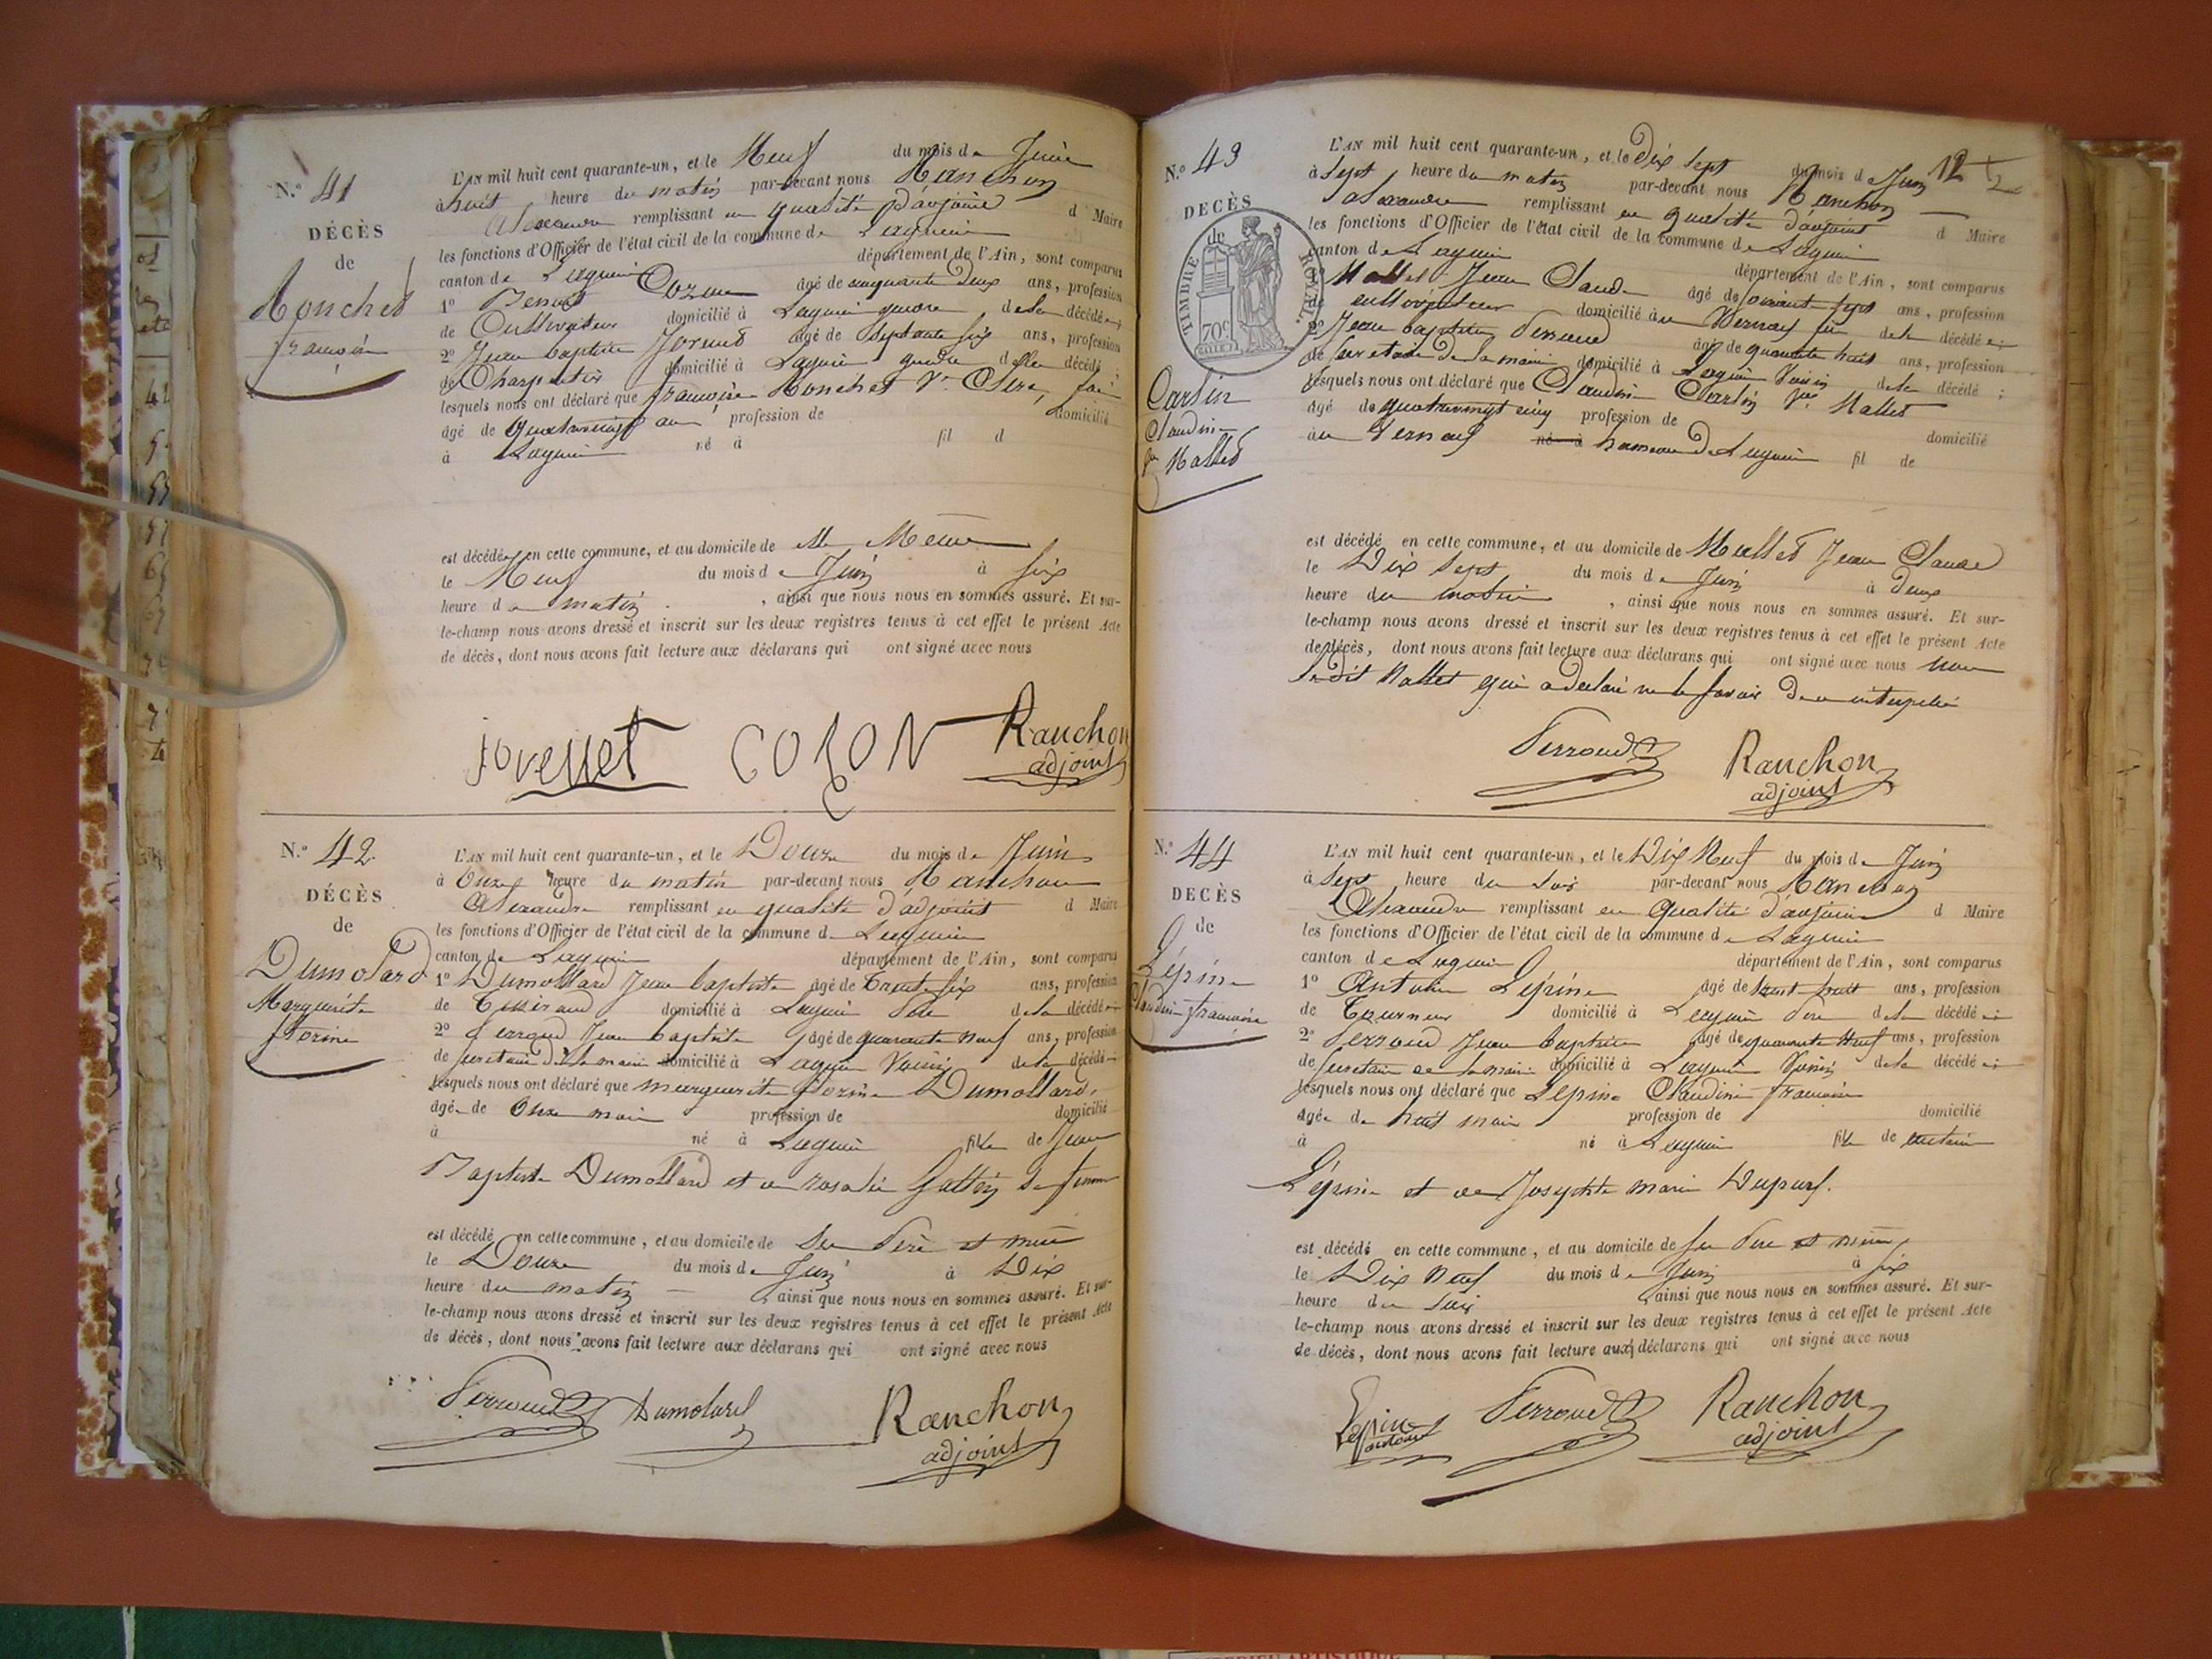 N.° 41
DÉCÈS
de
Monchet
françoise
L'AN mil huit cent quarante-un, et le Neuf du mois de Juin
à huit heure du matin par-devant nous Ranchon
Alexandre remplissant en qualité d'adjoint d Maire
les fonctions d'Officier de l'état civil de la commune de Lagnieu
canton de Lagnieu département de l'Ain, sont comparus
1° Benoit âgé de cinquante deux ans, profession
de Cultivateur domicilié à Lagnieu gendre de la décédée;
2° Jean baptiste âgé de septante six ans, profession
de Charpentier domicilié à Lagnieu gendre de la décédé;
lesquels nous ont déclaré que françoise Monchet Ve
âgé de quatrevingt ans profession de domicilié
à Lagnieu né à fil d
est décédée en cette commune, et au domicile de
le Neuf du mois de Juin à six
heure du matin, ainsi que nous nous en sommes assuré. Et sur-
le-champ nous avons dressé et inscrit sur les deux registres tenus à cet effet le présent Acte
de décès, dont nous avons fait lecture aux déclarans qui ont signé avec nous
Ranchon
adjoint
N.° 42
DÉCÈS
de
Dumolard
Marguerite
florine
L'AN mil huit cent quarante-un, et le Douze du mois de Juin
à Onze heure du matin par-devant nous Ranchon
Alexandre remplissant en qualité d'adjoint d Maire
les fonctions d'Officier de l'état civil de la commune d Lagnieu
canton de Lagnieu département de l'Ain, sont comparus
1° Dumollard Jean baptiste âgé de trente six ans, profession
de Tisserand domicilié à Lagnieu Père de la décédée
2° Perroud Jean baptiste âgé de quarante neuf ans, profession
de secretaire de la mairie domicilié à Lagnieu Voisin de la décédé
lesquels nous ont déclaré que marguerite florine Dumollard
âgée de Onze mois profession de domicilié
à né à Lagnieu fille de Jean
Baptiste Dumollard et de rosalie sa femme
est décédé en cette commune, et au domicile de ses Père et mère
le Douze du mois de Juin à Dix
heure du matin, ainsi que nous nous en sommes assuré. Et sur-
le-champ nous avons dressé et inscrit sur les deux registres tenus à cet effet le présent Acte
de décès, dont nous avons fait lecture aux déclarans qui ont signé avec nous
Perroud Dumolard Ranchon
adjoint
12
N.° 43
DÉCÈS
de
TIMBRE ROYAL
70c
Carlin
Claudine
Ve Mallet
L'AN mil huit cent quarante-un, et le Dix sept du mois de Juin
à sept heure du matin par-devant nous Ranchon
alexandre remplissant en qualité d'adjoint d Maire
les fonctions d'Officier de l'état civil de la commune de Lagnieu
canton de Lagnieu département de l'Ain, sont comparus
1° Mallet Jean Claude âgé de ans, profession
de cultivateur domicilié à au Vernay fils de la décédée;
2° Jean baptiste Perroud âgé de quarante huit ans, profession
de secretaire de la mairie domicilié à Lagnieu Voisin de la décédé;
lesquels nous ont déclaré que Claudine Carlin Ve Mallet
âgé de quatrevingt cinq profession de domicilié
à au Vernay né à hameau de Lagnieu fil de
est décédé en cette commune, et au domicile de Mallet Jean Claude
le Dix sept du mois de Juin à Deux
heure du matin, ainsi que nous nous en sommes assuré. Et sur-
le-champ nous avons dressé et inscrit sur les deux registres tenus à cet effet le présent Acte
de décès, dont nous avons fait lecture aux déclarans qui ont signé avec nous non
le dit Mallet qui a déclaré ne le savoir de ce interpellé
Perroud Ranchon
adjoint
N.° 44
DÉCÈS
de
Lépine
Claudine françoise
L'AN mil huit cent quarante-un, et le Dix Neuf du mois de Juin
à sept heure du soir par-devant nous Ranchon
Alexandre remplissant en qualité d'adjoint d Maire
les fonctions d'Officier de l'état civil de la commune de Lagnieu
canton de Lagnieu département de l'Ain, sont comparus
1° Antoine Lépine âgé de trente huit ans, profession
de Tourneur domicilié à Lagnieu Père de la décédée
2° Perroud Jean baptiste âgé de quarante Neuf ans, profession
de secretaire de la mairie domicilié à Lagnieu Voisin de la décédée
lesquels nous ont déclaré que Lépine Claudine françoise
âgée de huit mois profession de domicilié
à né à Lagnieu fille de antoine
Lépine et de Josephte marie Dupuis.
est décédé en cette commune, et au domicile de ses Père et mère
le Dix Neuf du mois de Juin à six
heure du soir, ainsi que nous nous en sommes assuré. Et sur-
le-champ nous avons dressé et inscrit sur les deux registres tenus à cet effet le présent Acte
de décès, dont nous avons fait lecture aux déclarans qui ont signé avec nous
Lépine antoine Perroud Ranchon
adjoint